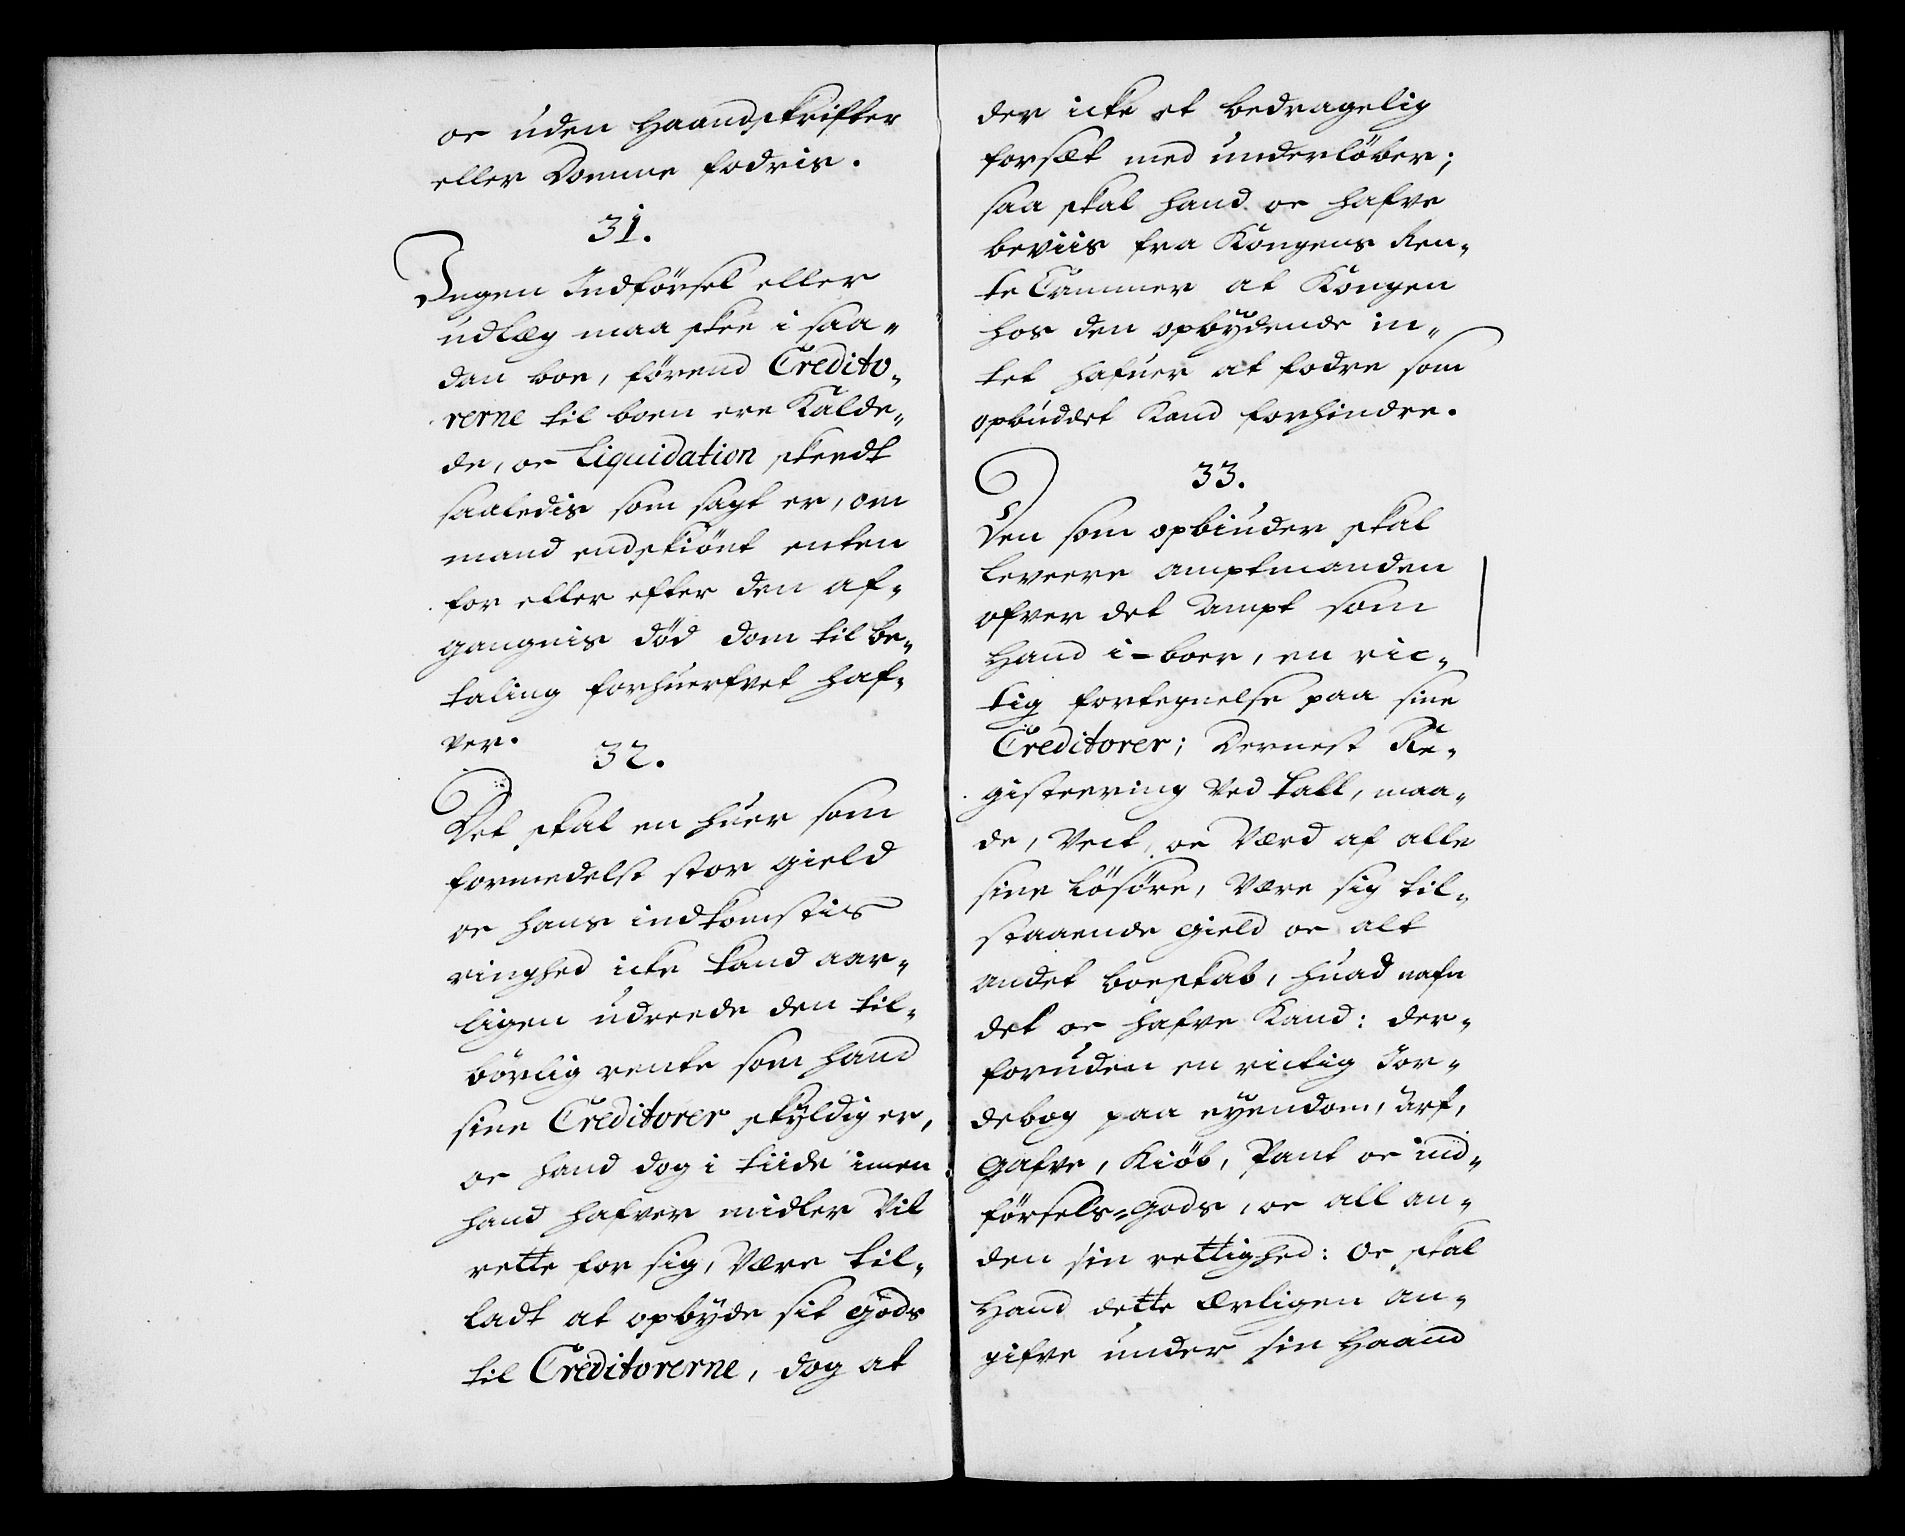 oc uden Haandskrifter
eller Domme fodris.
31.
Ingen Indförsel eller
udlæg maa skee i saa-
dan boe, förend Credito-
rerne til boen ere Kalde-
de, oc Liquidation skeedt
saaledis som sagt er, om
mand endskiönt enten
for eller efter den af-
gangnis död dom til be-
taling forhuerfvet haf-
ver.
32.
Det skal en huer som
formedelst stor gield
oc hans indkomstis
ringhed icke kand aar-
ligen udreede den til-
börlig rente som hand
sine Creditorer skyldig er,
oc hand dog i tiide imen
hand hafver midler vil
rette for sig, Være til-
ladt at opbyde sit gods
til Creditorerne, dog at
der icke et bedragelig
forsæt med underlöber;
saa skal hand oc hafve
beviis fra Kongens Ren-
te Cammer at Kongen
hos den opbydende in-
tet hafuer at fodre som
opbuddet Kand forhindre.
33.
Den som opbiuder skal
levere amptmanden
ofver det Ampt som
Hand i-boer, en ric-
tig fortegnelse paa sine
Creditorer; Dernest Re-
gisteering Ved tall, maa-
de, Vect, oc Værd af alle
sine lösöre, Være sig til-
staaende gield oc alt
andet boeskab, huad nafn
det oc hafve Kand: der-
foruden en rictig Jor-
debog paa eyendom, Arf,
Gafve, Kiöb, Pant oc ind-
försels-gods, oc all an-
den sin rettighed: Oc skal
Hand dette Ærligen an-
gifve under sin Haand